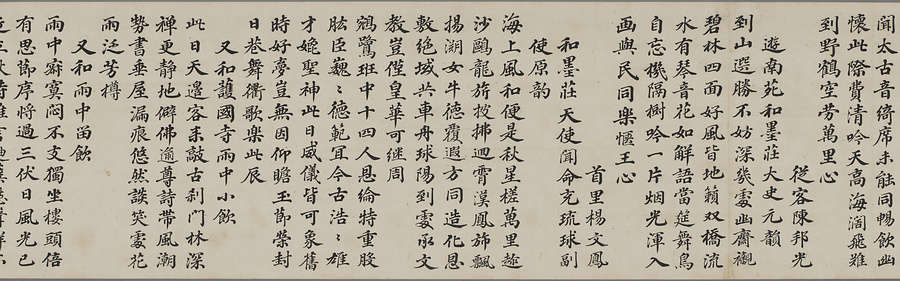 聞太古音綺席未能同暢飲幽
懷此際費清吟天高海闊飛難
到野鶴空勞萬里心
從客陳邦光
遊南苑和墨莊大史元韻
到山選勝不妨深幾處幽齋襯
碧林四面好風皆地籟双橋流
水有琴音花如解語當筵舞鳥
自忘機隔樹吟一片烟光渾入
画與民同樂愜王心
首里楊文鳳
和墨莊天使聞命充琉球副
使原韵
海上風和便是秋星槎萬里趁
沙鷗龍旂披拂迴霄漢鳳斾飄
揚溯女牛德覆遐方同造化恩
敷絕域共車舟球陽到處承文
教豈僅皇華可継周
鵷鷺班中十四人恩綸特重股
肱臣巍〻德範宜今古浩〻雄
才媲聖神此日威儀皆可象舊
時好夢豈無因仰瞻玉節榮封
日巷舞衢歌樂此辰
又和護國寺雨中小飲
此日天邊客来敲古刹门林深
禅更静地僻佛逾尊詩帶風潮
勢書垂屋漏痕悠然談笑處花
雨泛芳樽
又和雨中留飲
雨中寂寞悶不支獨坐樓頭倍
有思節序將過三伏日風光已